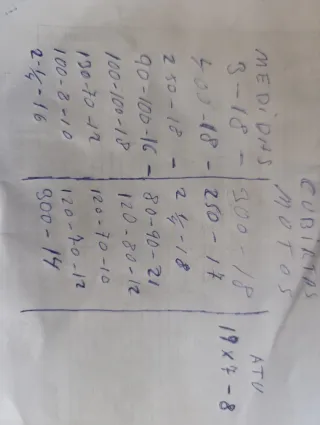 MOTOS
MEDIDAS ATV
3-18 - 300-18 19x7-8
400-18 - 250-17
250-18 - 2 1/4-18
90-100-16 - 80-90-21
100-100-18 120-80-12
130-70-12 120-70-10
100-8-10 120-70-12
2-1/4-16 300-14